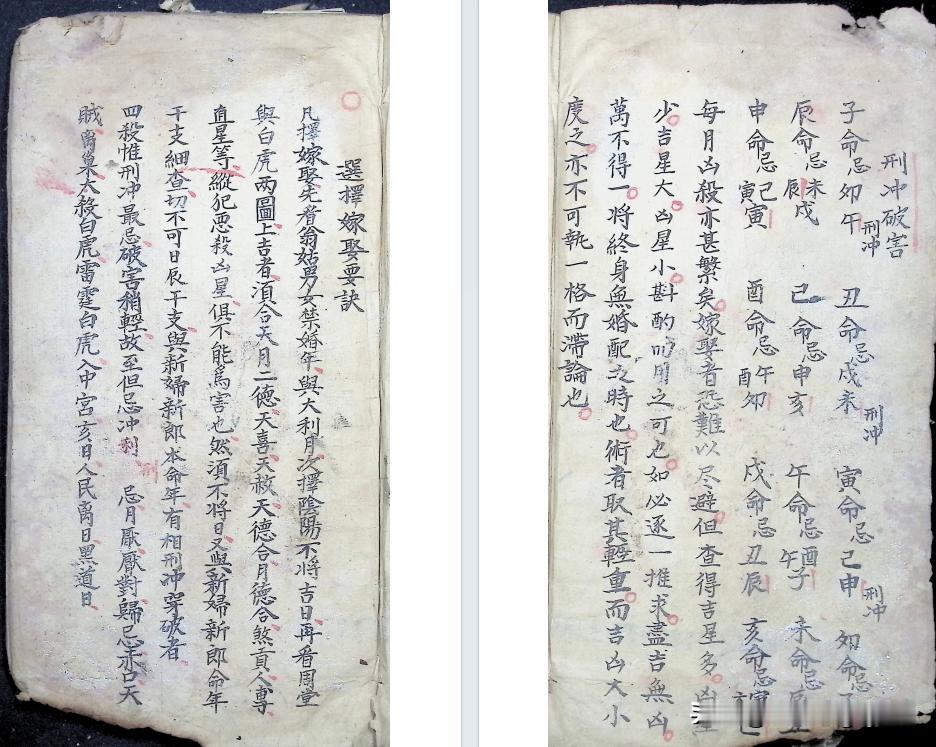 刑冲破害
子命忌夘午刑冲 丑命忌戌未刑冲 寅命忌己申刑冲 夘命忌
辰命忌未辰戌 己命忌申亥 午命忌酉午子 未命忌
申命忌己寅寅 酉命忌午酉夘 戌命忌丑辰 亥命忌
每月凶殺亦甚繁矣嫁娶者恐難以尽避但查得吉星多凶星
少吉星大凶星小斟酌而用之可也如必逐一推求盡吉無凶
萬不得一将終身無婚配之時也術者取其輕重而吉凶大小
度之亦不可執一格而滯論也
選擇嫁娶要訣
凡擇嫁娶先看翁姑男女禁婚年與大利月次擇陰陽不将吉日再看周堂
與白虎两圖上吉者須合天月二德天喜天赦天德合月德合煞貢人專
直星等縱犯恶殺凶星俱不能為害也然須不將日又與新婦新郎命年
干支細查切不可日辰干支與新婦新郎本命年有相刑冲穿破者
四殺惟刑冲最忌破害稍輕故至但忌冲刑 忌月厭厭對歸忌赤口天
賊离巢大殺白虎雷霆白虎入中宮亥日人民离日黑道日